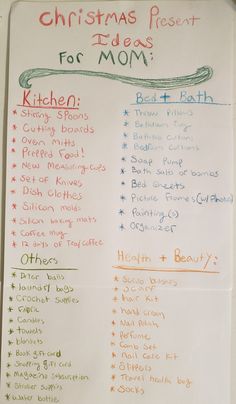 Christmas Present
Ideas
For MOM:
Kitchen:
* Stirring Spoons
* Cutting boards
* Oven Mitts
* Prepped Food!
* New Measuring Cups
* Set of Knives
* Dish Clothes
* Silicon molds
* Silicon baking mats
* Coffee Mug
* 12 days of Tea/Coffee
Bed + Bath
* Throw Pillows
* Bathroom
* Bathroom
* Bedroom
* Soap Pump
* Bath salts or bombs
* Bed Sheets
* Picture Frames (w/Photos)
* Painting(s)
* Organizer
Others
* Dryer balls
* laundry bags
* Crochet Supplies
* Fabric
* Candles
* towels
* blankets
* Book gift card
* Shopping gift card
* Magazine subscription
* Supplies
* Water bottle
Health + Beauty:
* Scrub brushes
* Scarf
* hair Kit
* hand cream
* Nail Polish
* Perfume
* Comb Set
* Nail care Kit
* Slippers
* Travel health bag
* Socks